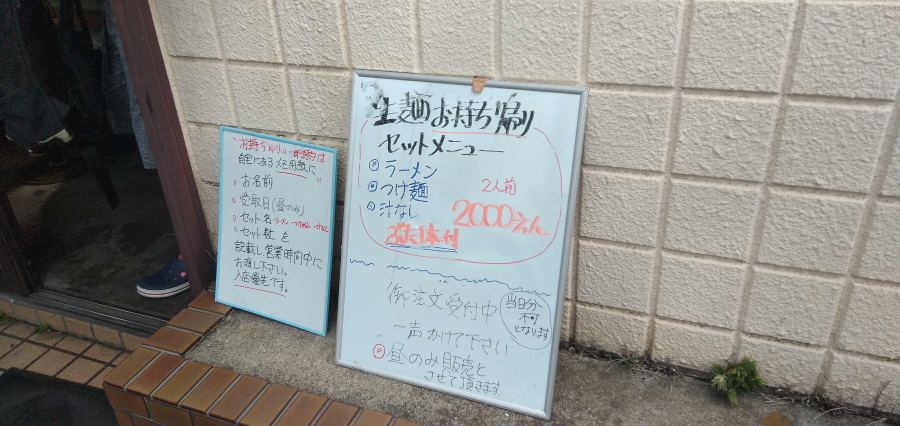 お持ち帰り予約は
自宅にあるメモ用紙に
お名前
受取日(昼のみ)
セット名 ラーメン・つけめん・汁なし
セット数 を
記載し、営業時間中に
お渡し下さい。
入店優先です。
生麺お持ち帰り
セットメニュー
◎ラーメン
◎つけ麺
◎汁なし
2人前
2000えん
ぶた1本付
御注文受付中
当日分
不可
となります
一声かけて下さい
◎昼のみ販売と
させて頂きます